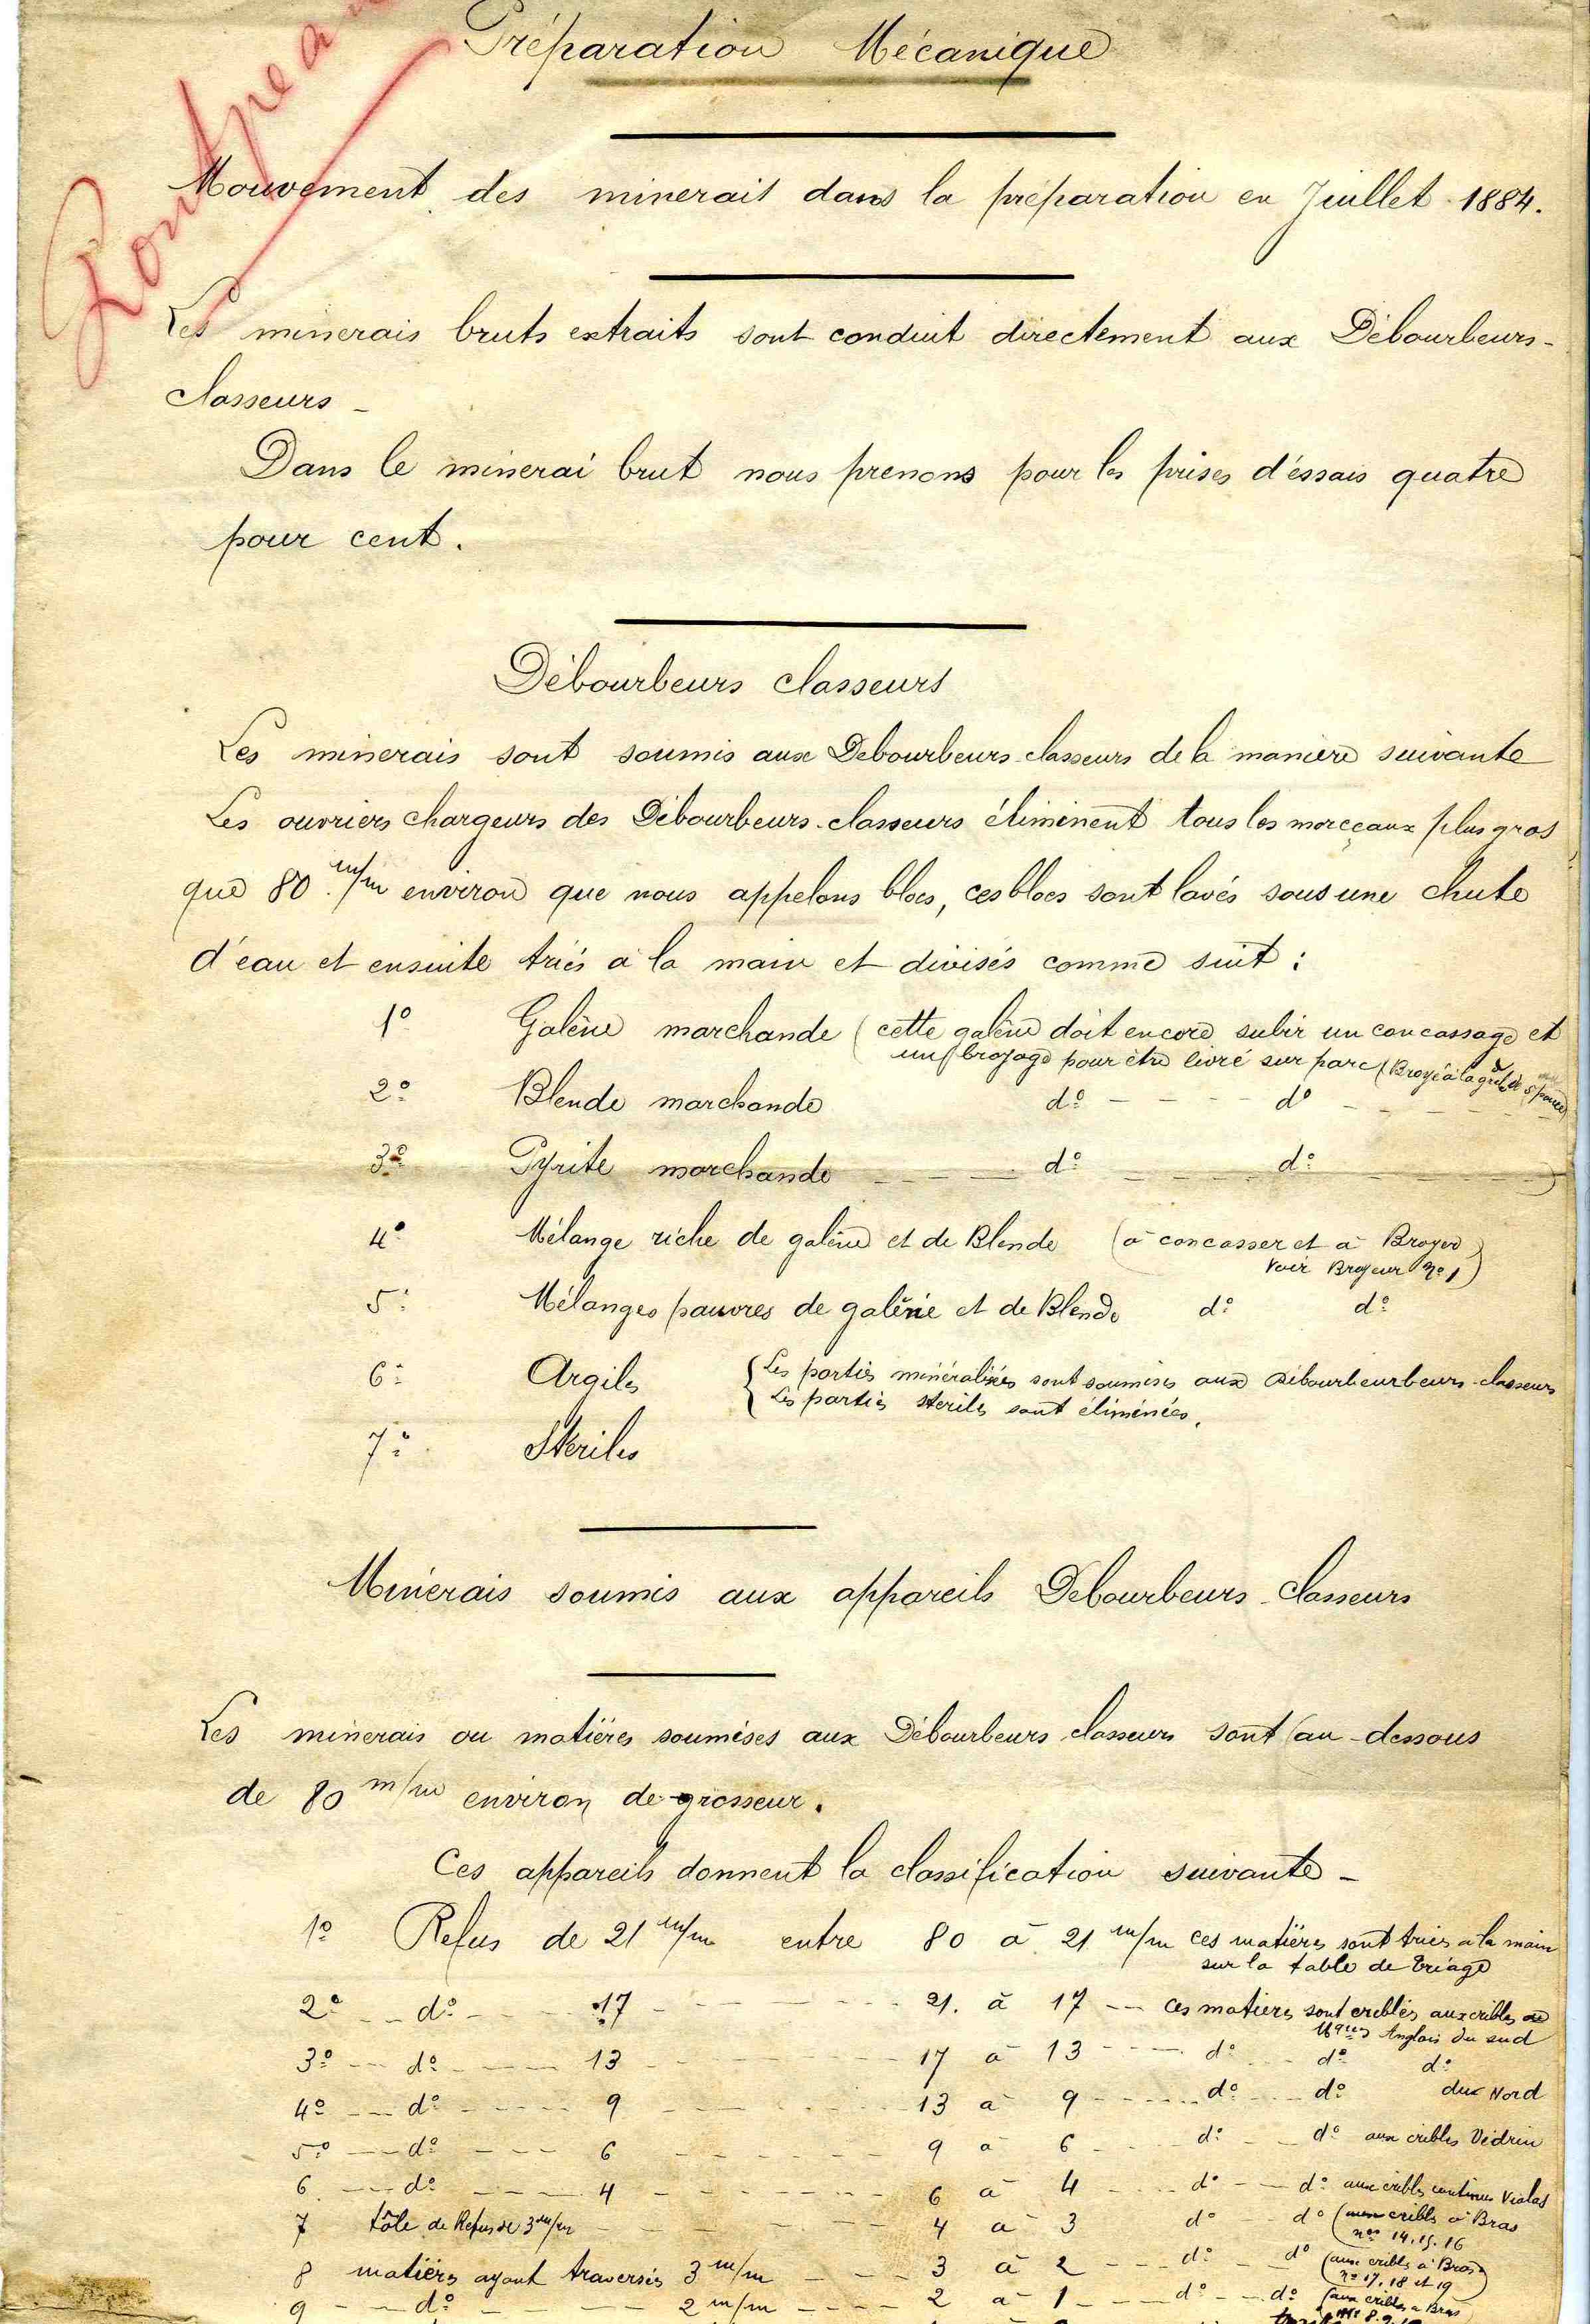 Préparation Mécanique
Pontpean
Mouvement des minerais dans la préparation en Juillet 1884.
Les minerais bruts extraits sont conduit directement aux Débourbeurs-
classeurs -
Dans le minerai brut nous prenons pour les prises d'éssais quatre
pour cent.
Débourbeurs classeurs
Les minerais sont soumis aux Debourbeurs-classeurs de la manière suivante
Les ouvriers chargeurs des Débourbeurs-classeurs éliminent tous les morceaux plus gros
que 80 m/m environ que nous appelons blocs, ces blocs sont lavés sous une chute
d'eau et ensuite triés à la main et divisés comme suit :
1º Galène marchande (cette galène doit encore subir un concassage et
un broyage pour être livré sur parc (Broyé à la
2º Blende marchande dº - - - - dº - - - -
3º Pyrite marchande - - - - dº - - - - dº - - - - )
4º Mélange riche de galène et de Blende (à concasser et à Broyer
voir Broyeur nº 1)
5º Mélanges pauvres de galène et de Blende dº dº
6º Argiles { Les parties minéralisées sont soumises aux débourbeurbeurs-classeurs
Les parties steriles sont éliminées.
7º Steriles
Minerais soumis aux appareils Debourbeurs-Classeurs
Les minerais ou matières soumises aux Débourbeurs classeurs sont au-dessous
de 80 m/m environ de grosseur.
Ces appareils donnent la classification suivante -
1º Refus de 21 m/m entre 80 à 21 m/m ces matières sont triés a la main
sur la table de triage
2º -- dº - - - 17 - - - - 21. à 17 --- ces matieres sont criblés aux cribles
Anglais du sud
3º --- dº - - - 13 - - - - 17 à 13 - - - dº - - dº dº
4º --- dº - - - 9 - - - - 13 à 9 - - - dº - - dº du Nord
5º --- dº - - - 6 - - - - 9 à 6 - - - dº - - dº aux cribles Védrin
6 --- dº - - - 4 - - - - 6 à 4 - - - dº - - dº aux cribles continus Vialas
7 tôle de Refus de 3 m/m - - - - 4 à 3 dº - - dº (aux cribles à Bras
nos 14. 15. 16
8 matières ayant traversés 3 m/m - - - 3 à 2 - - - dº - - dº (aux cribles à Bras
nº 17, 18 et 19)
9 - - dº - - - 2 m/m - - - 2 à 1 - - - dº - - dº (aux cribles a Bras